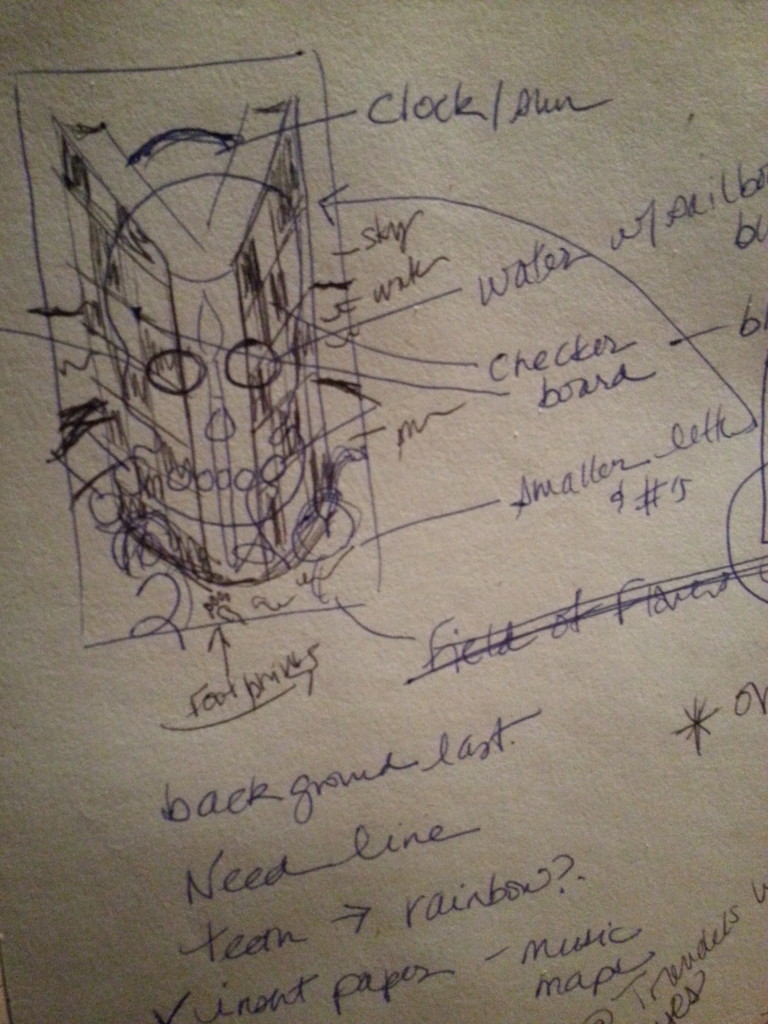 Clock/sun
sky
water
water w/ sailbo
Checker
board
smaller lett
& #'s
Field of Flowers
2
Footprints
background last.
Need line
teeth → rainbow?
* or
✓ insert paper - music
maps